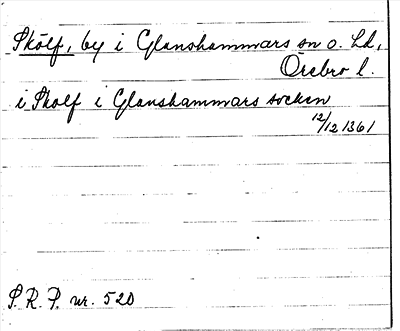 Skölf, by i Glanshammars sn o. hd,
Örebro l.
i Skolf i Glanshammars socken
12/12 1361
S. R. P. nr. 520